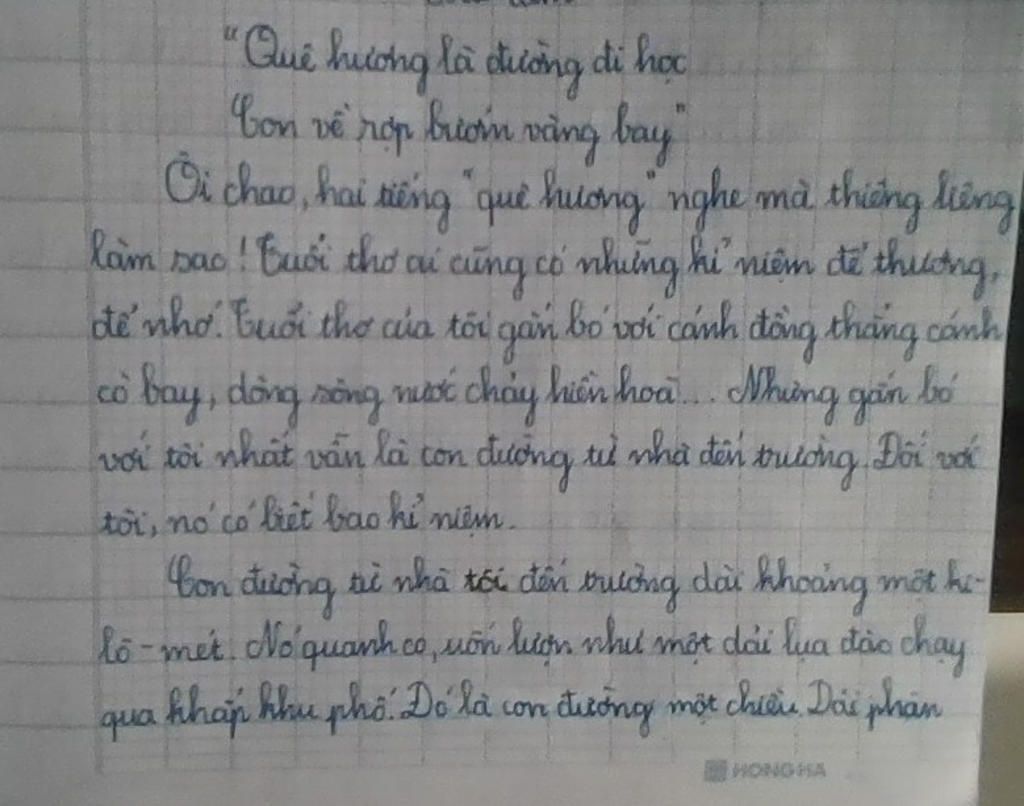 "Quê hương là đường đi học
Con về rợp bướm vàng bay"
Ôi chao, hai tiếng "quê hương" nghe mà thiêng liêng
làm sao! Tuổi thơ ai cũng có những kỉ niệm để thương,
để nhớ. Tuổi thơ của tôi gắn bó với cánh đồng thẳng cánh
cò bay, dòng sông nước chảy hiền hoà... Nhưng gắn bó
với tôi nhất vẫn là con đường từ nhà đến trường. Đối với
tôi, nó có biết bao kỉ niệm.
Con đường từ nhà tôi đến trường dài khoảng một ki-
lô-mét. Nó quanh co, uốn lượn như một dải lụa đào chạy
qua khắp khu phố. Đó là con đường một chiều. Dải phân
HONG HA